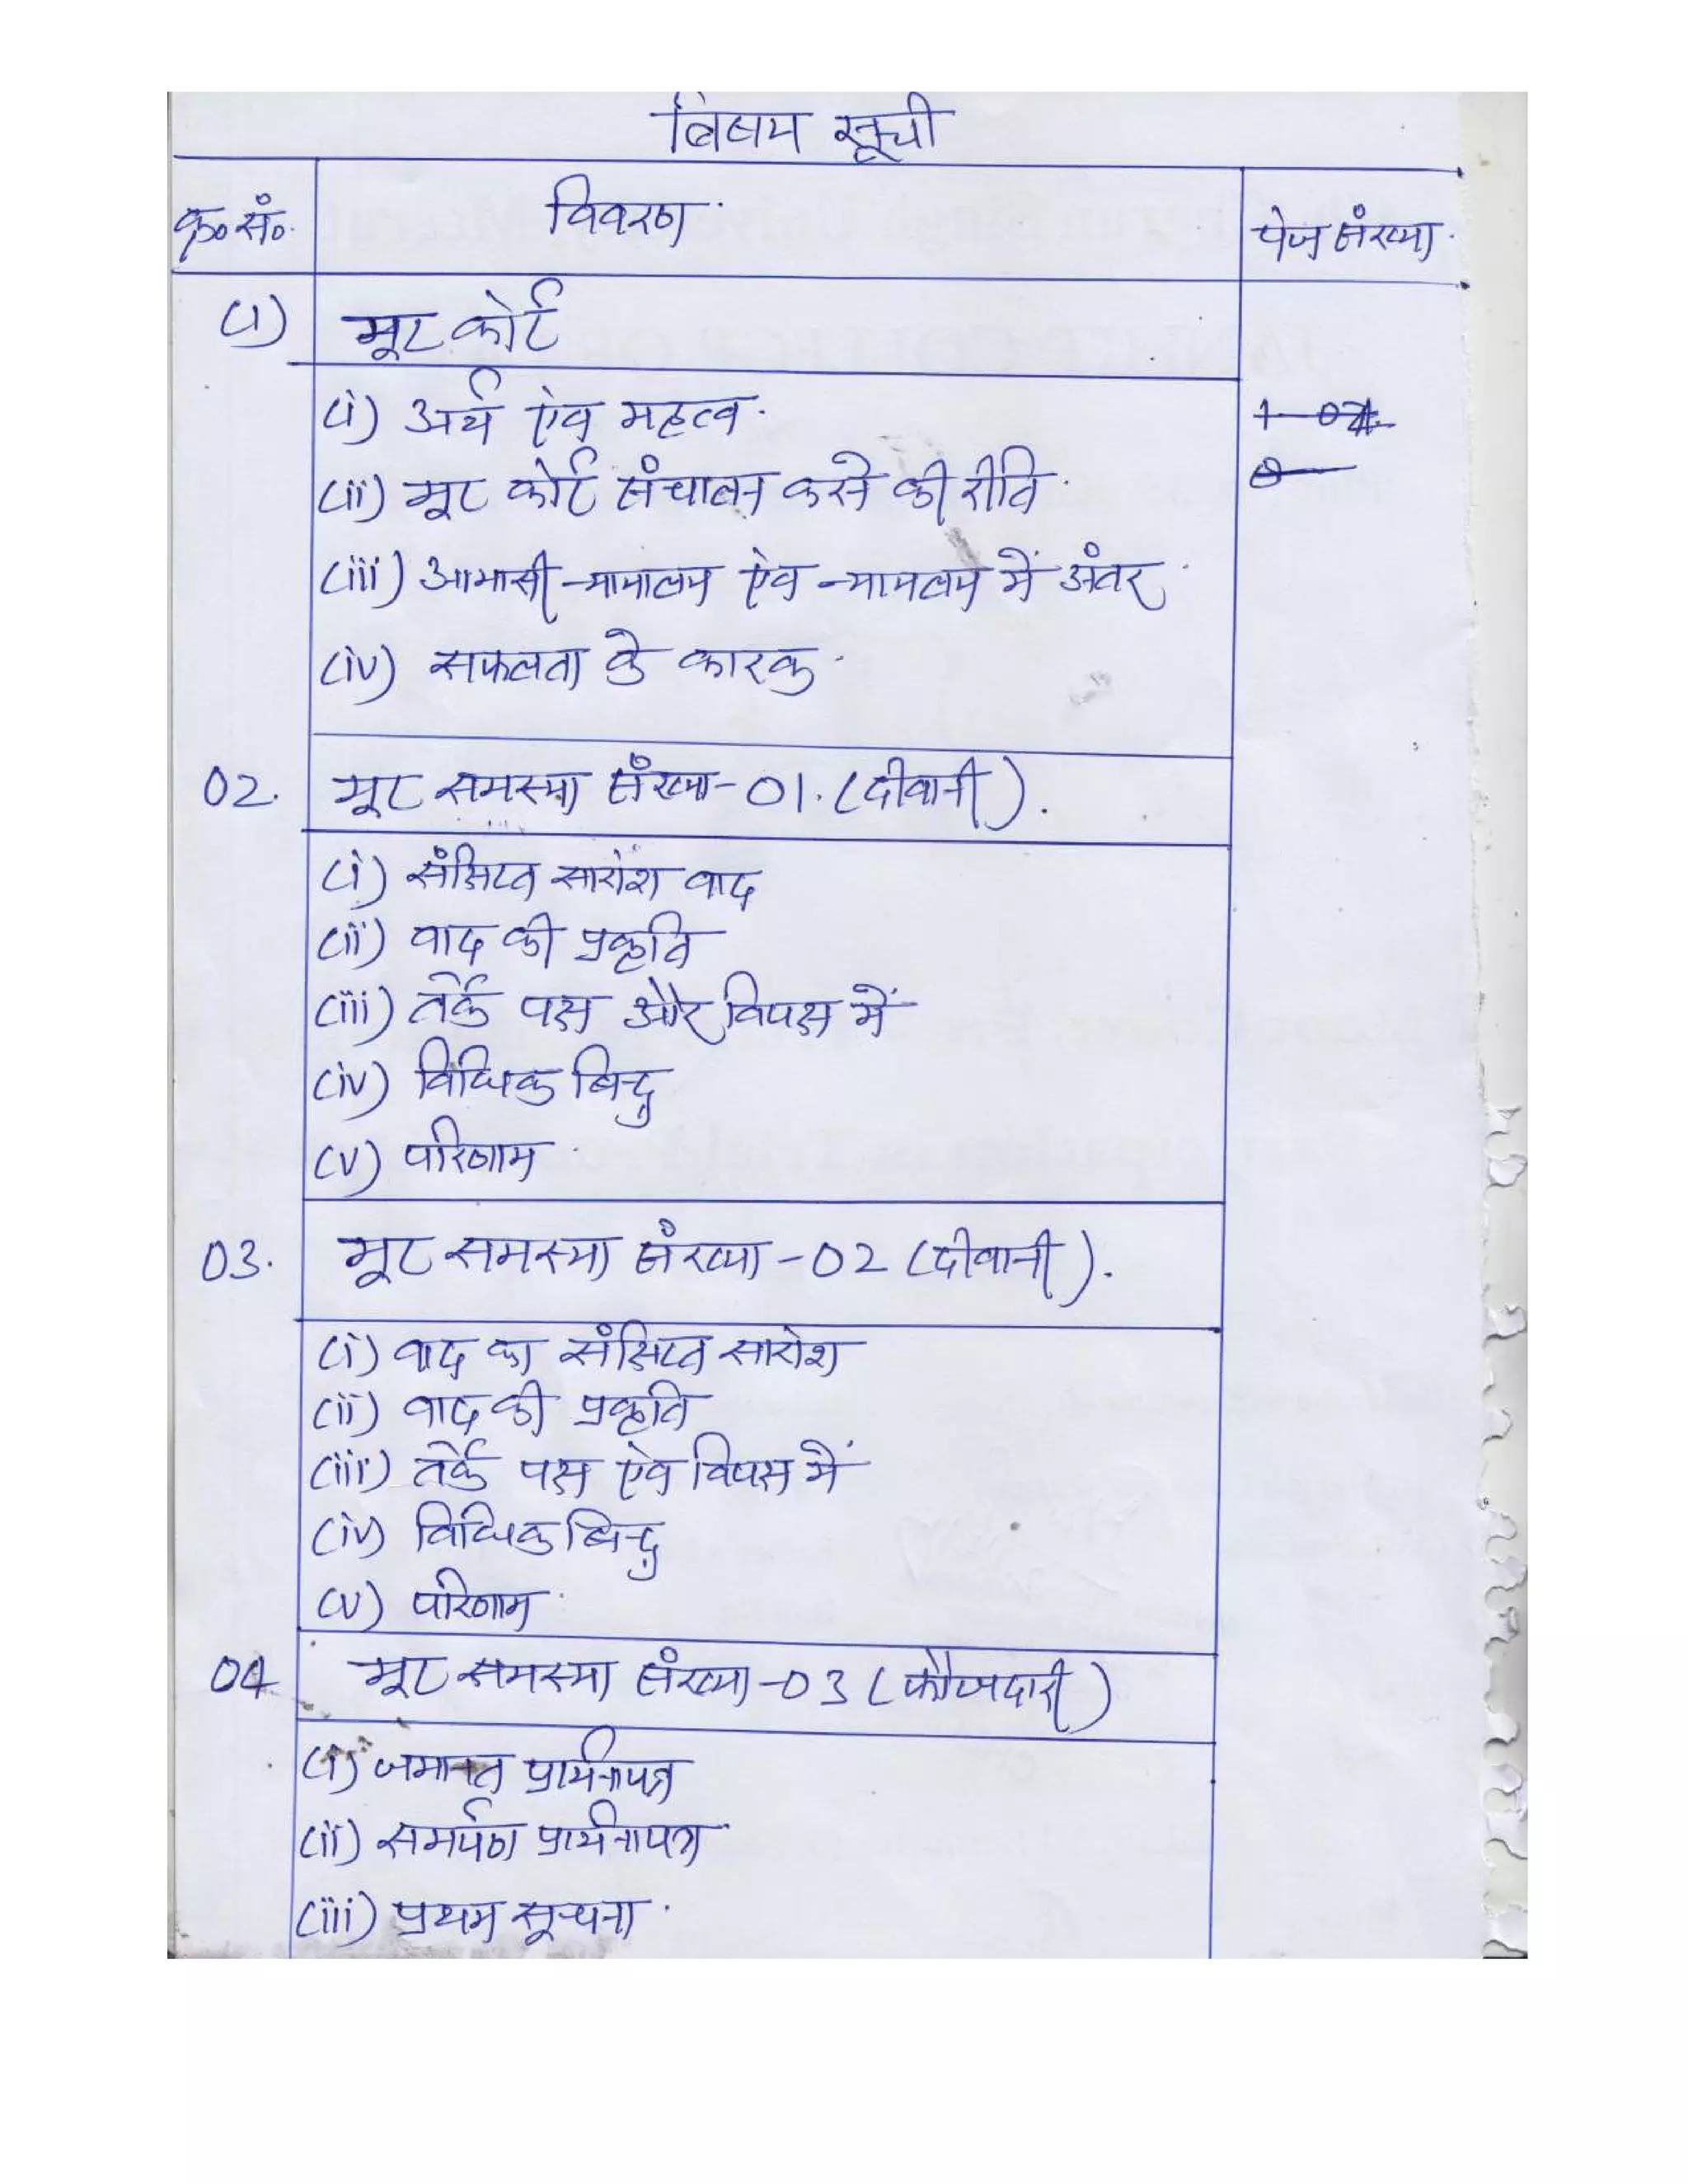 बिषय सूची
क्र० सं०. विवरण. पेज संख्या.
(1) मूट कोर्ट
(i) अर्थ एंव महत्व.
(ii) मूट कोर्ट संचालन करने की रीति.
(iii) आभासी न्यायालय एंव न्यायलय में अंतर.
(iv) सफलता के कारक.
02. मूट समस्या संख्या-01. (दीवानी).
(i) संक्षिप्त सारांश वाद
(ii) वाद की प्रकृति
(iii) तर्क पक्ष और विपक्ष में
(iv) विधिक बिन्दु
(v) परिणाम.
03. मूट समस्या संख्या-02 (दीवानी).
(i) वाद का संक्षिप्त सारांश
(ii) वाद की प्रकृति
(iii) तर्क पक्ष एंव विपक्ष में
(iv) विधिक बिन्दु
(v) परिणाम.
04 मूट समस्या संख्या-03 (फौजदारी)
(i) जमानत प्रार्थनापत्र
(ii) समर्पण प्रार्थनापत्र.
(iii) प्रथम सूचना.